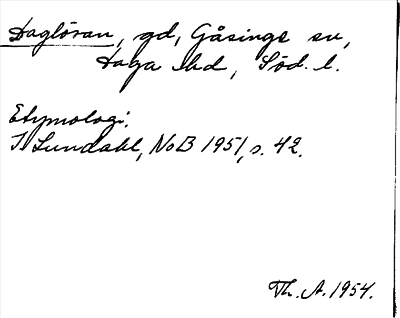 Daglöran, gd, Gåsinge sn,
Daga hd, Söd. l.
Etymologi.
I Lundahl, NoB 1951, s. 42.
Th. A. 1954.